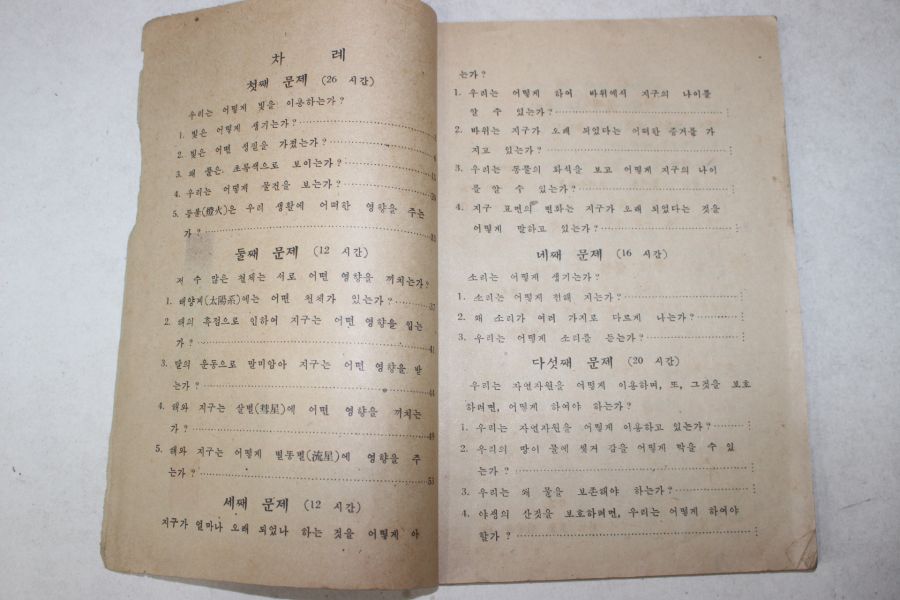 차 례
첫째 문제 (26 시간)
우리는 어떻게 빛을 이용하는가?
1. 빛은 어떻게 생기는가?
2. 빛은 어떤 성질을 가졌는가?
3. 왜 풀은 초록색으로 보이는가?
4. 우리는 어떻게 물건을 보는가?
5. 등불(燈火)은 우리 생활에 어떠한 영향을 주는
가?
둘째 문제 (12 시간)
저 수 많은 천체는 서로 어떤 영향을 끼치는가?
1. 태양계(太陽系)에는 어떤 천체가 있는가? 37
2. 해의 흑점으로 인하여 지구는 어떤 영향을 입는
가? 41
3. 달의 운동으로 말미암아 지구는 어떤 영향을 받
는가? 44
4. 해와 지구는 살별(彗星)에 어떤 영향을 끼치는
가? 48
5. 해와 지구는 어떻게 별똥별(流星)에 영향을 주
는가? 51
세째 문제 (12 시간)
지구가 얼마나 오래 되었나 하는 것을 어떻게 아
는가?
1. 우리는 어떻게 하여 바위에서 지구의 나이를
알 수 있는가?
2. 바위는 지구가 오래 되었다는 어떠한 증거를 가
지고 있는가?
3. 우리는 동물의 화석을 보고 어떻게 지구의 나이
를 알 수 있는가?
4. 지구 표면의 변화는 지구가 오래 되었다는 것을
어떻게 말하고 있는가?
네째 문제 (16 시간)
소리는 어떻게 생기는가?
1. 소리는 어떻게 전해 지는가?
2. 왜 소리가 여러 가지로 다르게 나는가?
3. 우리는 어떻게 소리를 듣는가?
다섯째 문제 (20 시간)
우리는 자연자원을 어떻게 이용하며, 또, 그것을 보호
하려면, 어떻게 하여야 하는가?
1. 우리는 자연자원을 어떻게 이용하고 있는가?
2. 우리의 땅이 물에 씻겨 감을 어떻게 막을 수 있
는가?
3. 우리는 왜 물을 보존해야 하는가?
4. 야생의 산것을 보호하려면, 우리는 어떻게 하여야
할가?